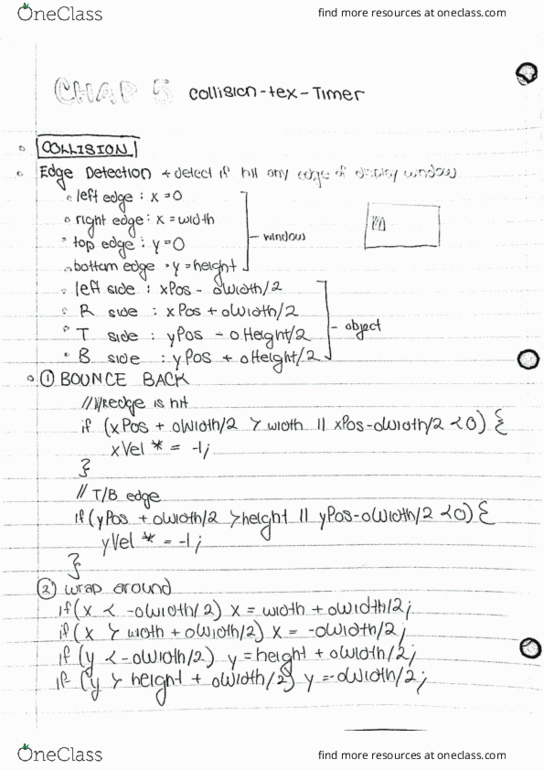 OneClass
find more resources at oneclass.com
CHAP 5 collision-tex-Timer
COLLISION
Edge Detection → detect if hit any edge of display window
left edge : x = 0
right edge : x = width
top edge : y = 0
window
bottom edge : y = height
left side : xPos - oWidth/2
R side : xPos + oWidth/2
T side : yPos - oHeight/2
object
B side : yPos + oHeight/2
① BOUNCE BACK
// l/R edge is hit
if (xPos + oWidth/2 > width || xPos-oWidth/2 <0) {
xVel * = -1;
}
// T/B edge
if (yPos + oWidth/2 >height || yPos-oWidth/2 <0) {
yVel * = -1;
}
② wrap around
if(x < -oWidth/2) x = width + oWidth/2;
if(x > width + oWidth/2) x = -oWidth/2;
if (y <-oWidth/2) y = height + oWidth/2;
if (y > height + oWidth/2) y =-oWidth/2;
OneClass
find more resources at oneclass.com